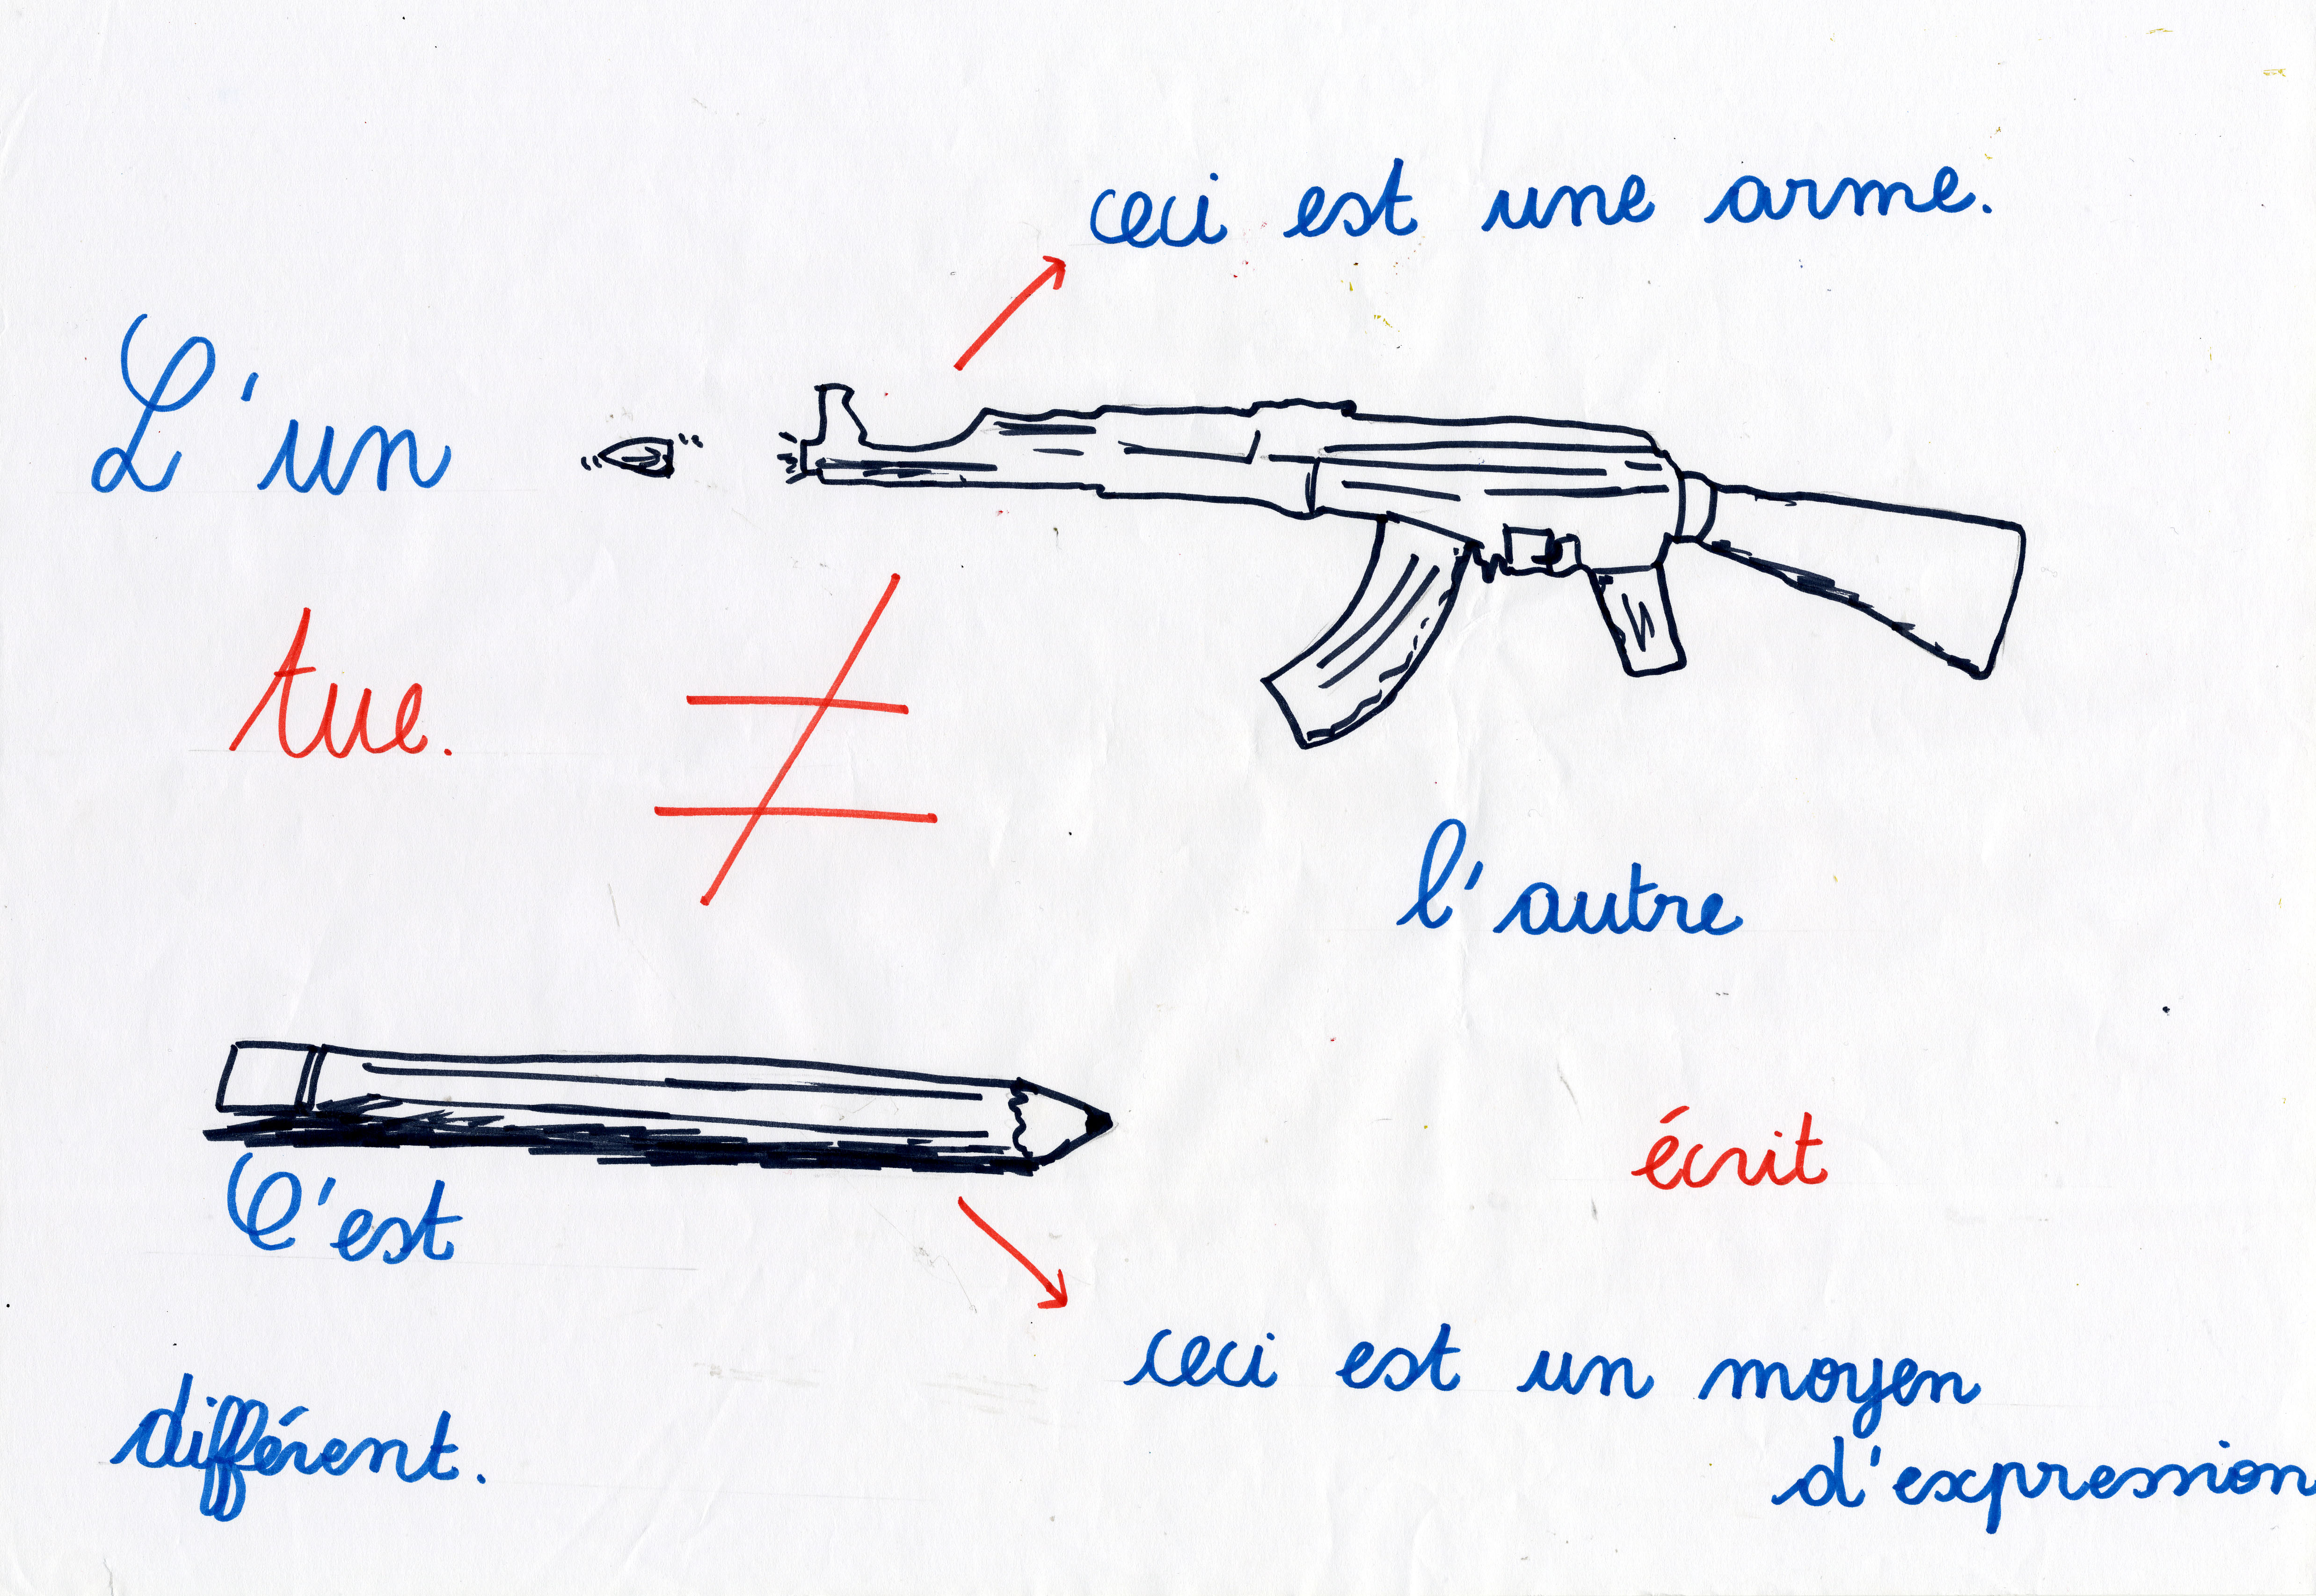 ceci est une arme.
L'un
tue.
l'autre
écrit
C'est
différent.
ceci est un moyen
d'expression